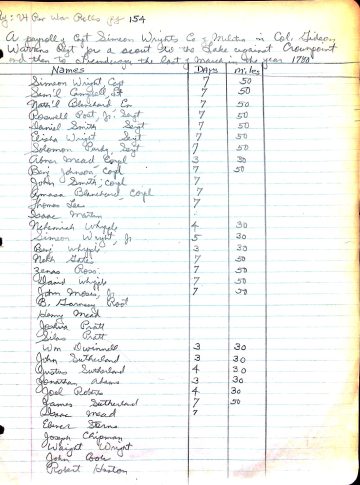 Vt Rev War Rolls pg 154
A payroll of Capt Simeon Wrights Co of Militia in Col. Gideon
Warrens Regt for a scout to the Lake against Crownpoint
and then to Ticonderoga the last of March in the year 1780
Names Days Miles
Simeon Wright, Capt 7 50
Sam'l Campbell, Lt 7 50
Nath'l Blanchard En 7 50
Roswell Post, Jr, Sergt 7 50
Daniel Smith Sergt 7 50
Elisha Wright Sergt 7 50
Solomon Purdy, Sergt 7 50
Abner Mead Corpl 3 30
Benj Johnson, Corpl 7 50
John Smith, Corpl 7
Blanchard, Corpl 7
Thomas Lee 7
Isaac Martin
Nehemiah Whipple 4 30
Simeon Wright, Jr 5 30
Benj Whipple 3 30
Noah Gates 7 50
Zenas Ross 7 50
David Whipple 7 50
John Moses, Jr 7 50
B. Root
Henry Mead
Joshua Pratt
Silas Pratt
Wm Dwinnell 3 30
John Sutherland 3 30
Sutherland 4 30
Jonathan Adams 3 30
Joel Roberts 4 30
James Sutherland 7 50
Isaac Mead 7
Ebner Sterns
Joseph Chipman
Wait Wright
John Cook
Robert Huston